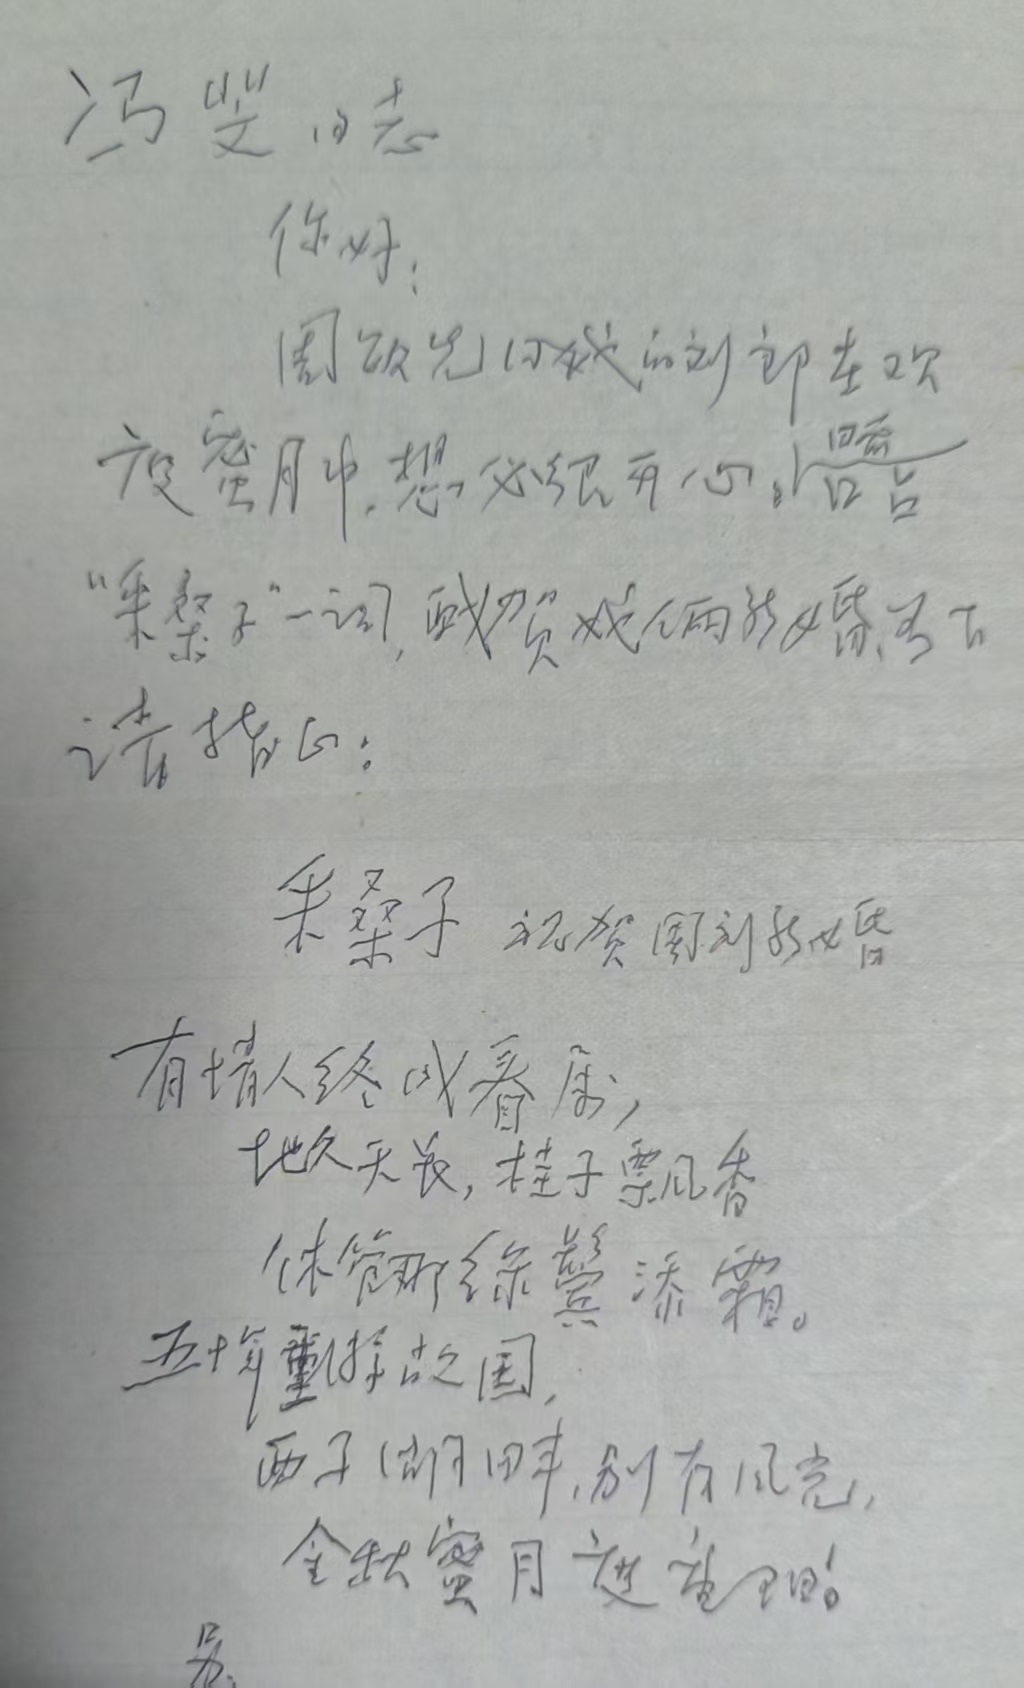 冯斐同志
你好:
周颂先何我的刘郎在欢
度蜜月中,想必很开心,
"采桑子"一词,戏贺我俩新婚,录下
请指正:
采桑子 祝贺周刘新婚
有情人终成眷属,
地久天长,桂子飘香
休管那绿鬓添霜。
五十年重游故国,
西子湖畔,别有风光,
金秋蜜月度重阳!
另.